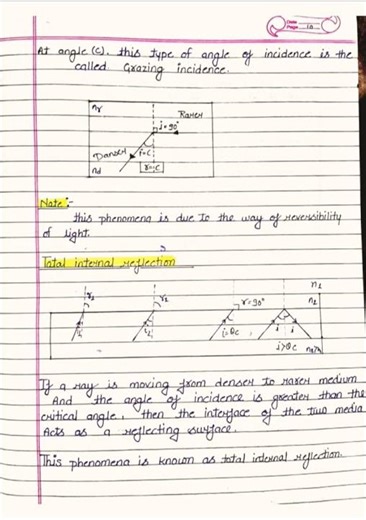 Date
Page 10
At angle (c). this type of angle of incidence is the
called Grazing incidence.
nr
Rarer
i = 90°
Denser
r=c
nd
r=c
Note:-
this phenomena is due to the way of reversibility
of light.
Total internal reflection
n2
r1
r2
r = 90°
n2
i
i
i=θc
i
i
i>θc
If a ray is moving from denser to rarer medium
And the angle of incidence is greater than the
critical angle, then the interface of the two media
Acts as a reflecting surface.
This phenomena is known as total internal reflection.